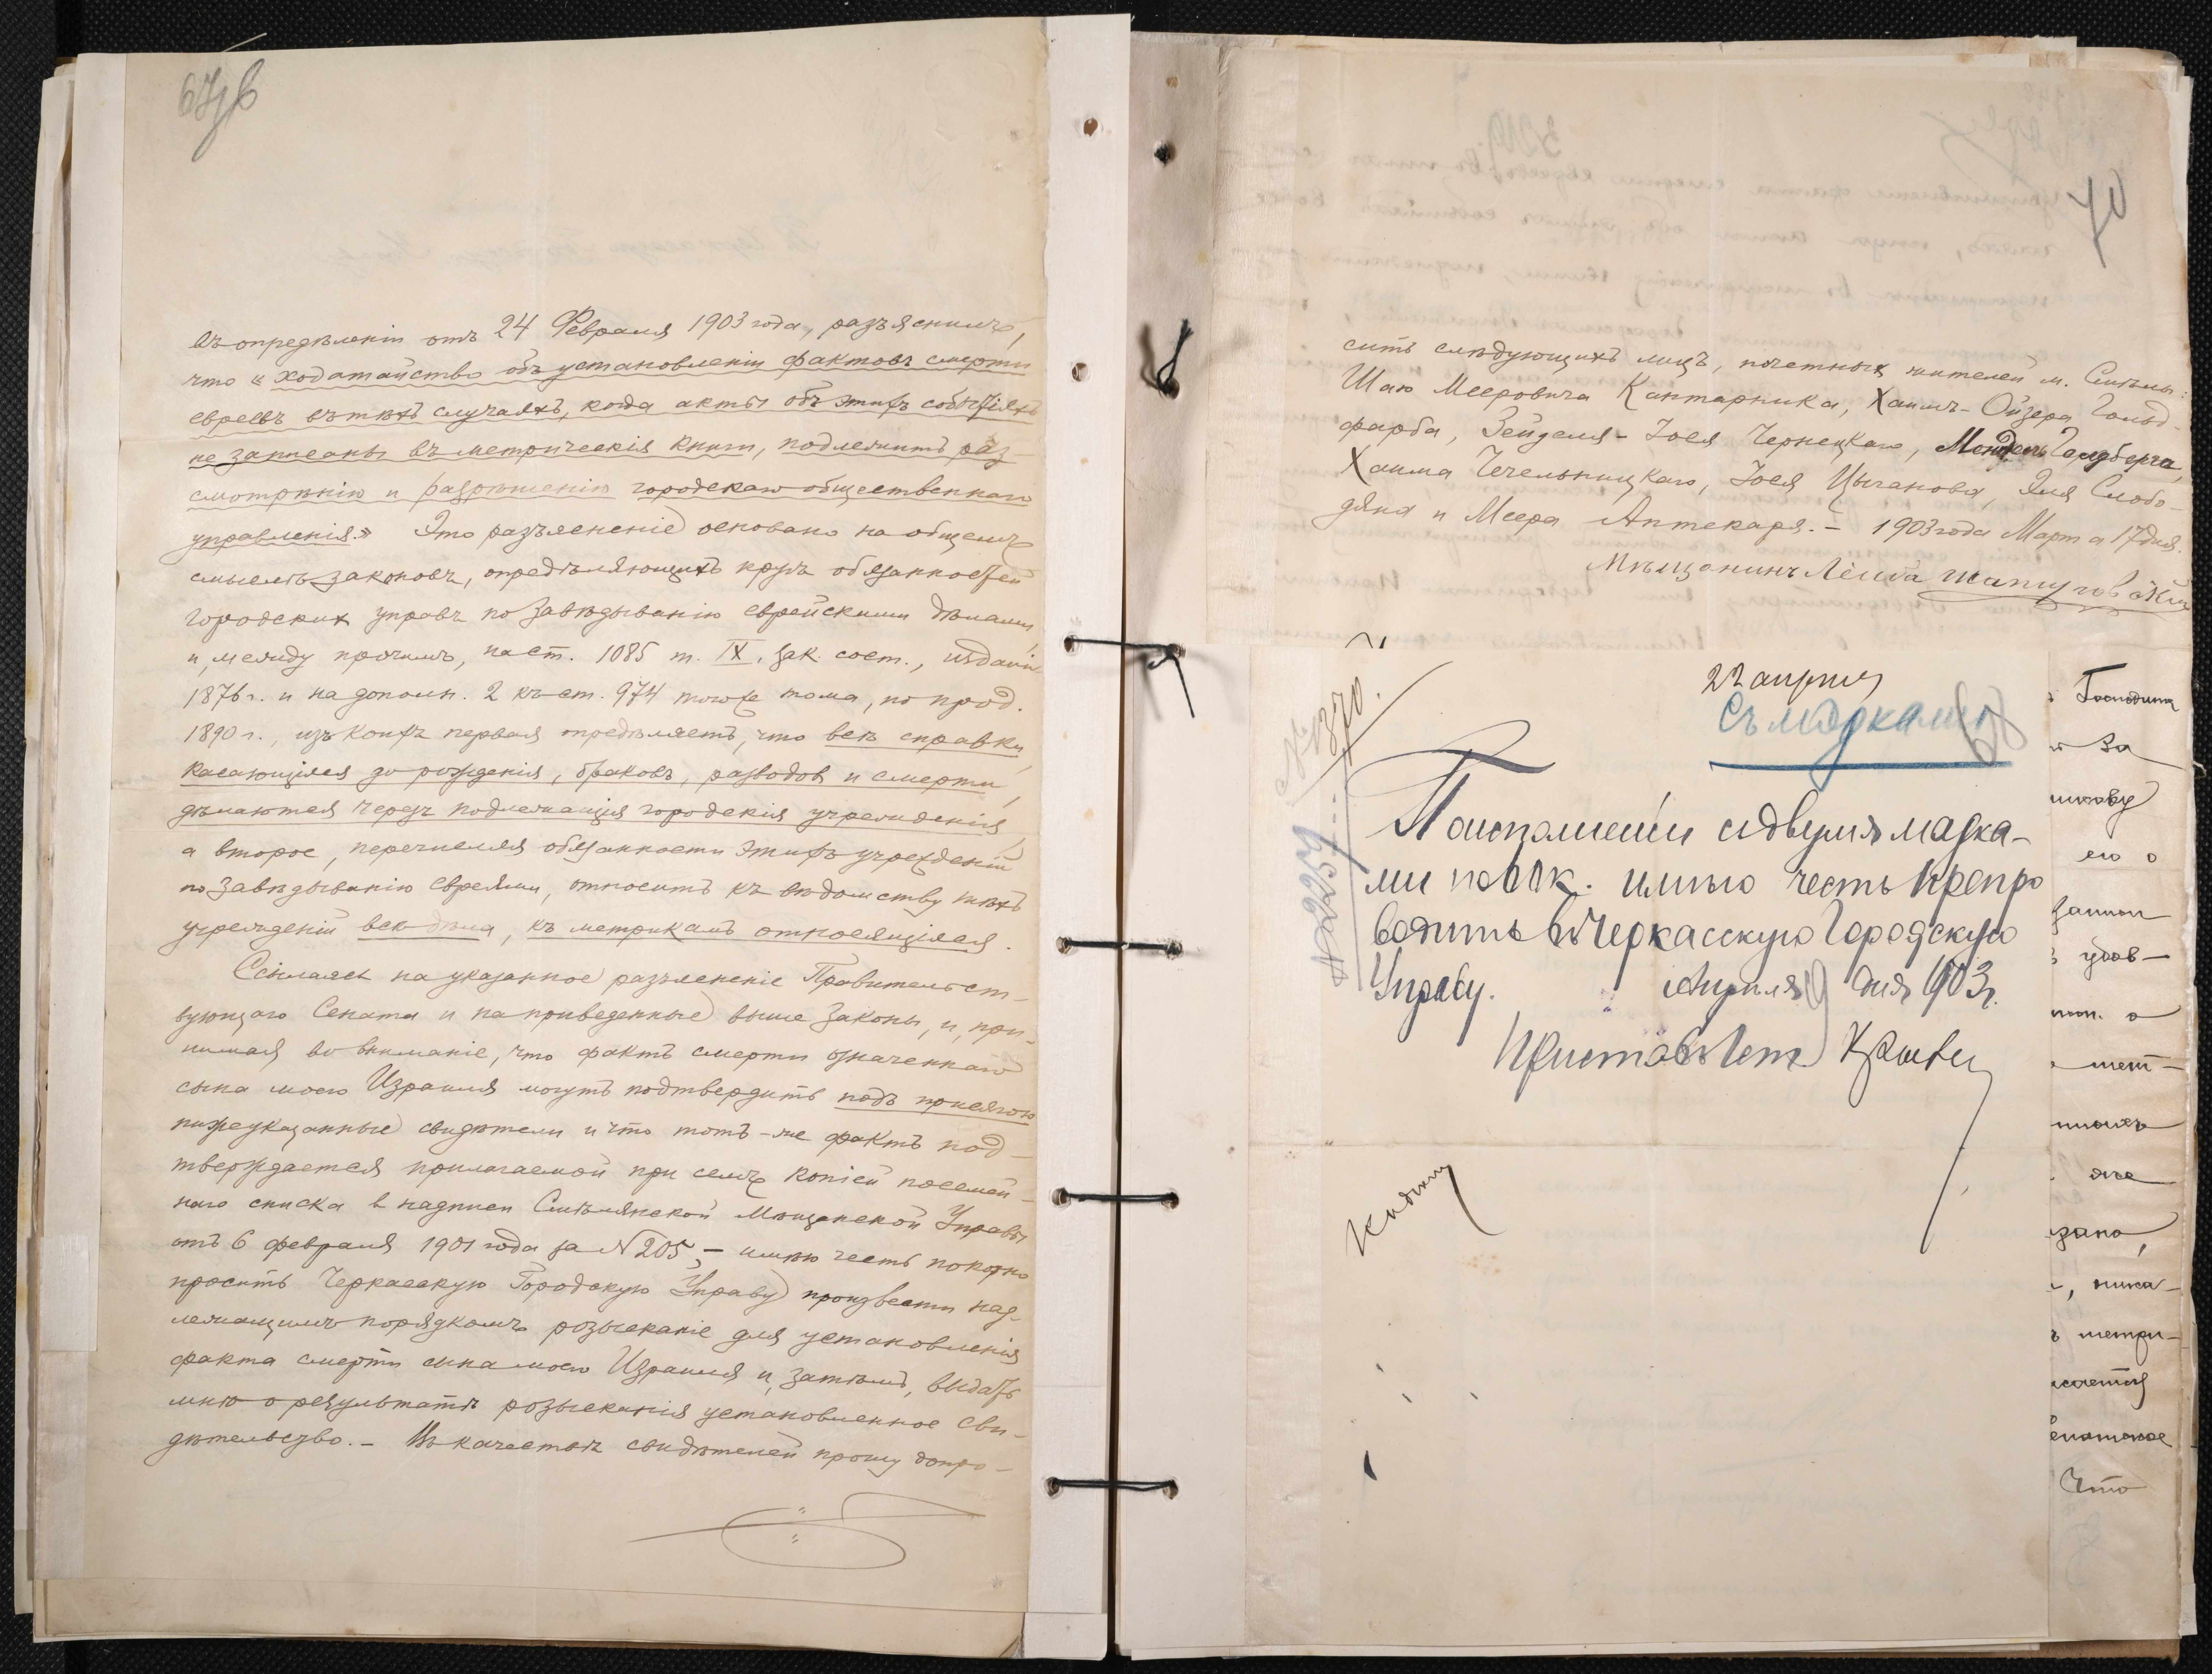 въ опредѣленіи отъ 24 Февраля 1903 года, разъяснилъ,
что «ходатайство объ установленіи фактовъ смерти
евреевъ въ тѣхъ случаяхъ, когда акты объ этихъ событіяхъ
не записаны въ метрическія книги, подлежитъ раз-
смотрѣнію и разрѣшенію городскаго общественнаго
управленія.» Это разъясненіе основано на общемъ
смыслѣ законовъ, опредѣляющихъ кругъ обязанностей
городскихъ управъ по завѣдыванію еврейскими дѣлами,
и, между прочимъ, на ст. 1085 т. IX, зак. сост., изданія
1876 г. и на дополн. 2 къ ст. 974 того же тома, по прод.
1890 г., изъ коихъ первая опредѣляетъ, что всѣ справки,
касающіяся до рожденія, браковъ, разводовъ и смерти,
дѣлаются черезъ подлежащія городскія учрежденія,
а второе, перечисляя обязанности этихъ учрежденій
по завѣдыванію евреями, относитъ къ вѣдомству тѣхъ
учрежденій всѣ дѣла, къ метрикамъ относящіяся.
Ссылаясь на указанное разъясненіе Правительст-
вующаго Сената и на приведенные выше законы, и, при-
нимая во вниманіе, что фактъ смерти означеннаго
сына моего Израиля могутъ подтвердить подъ присягою
нижеуказанные свидѣтели и что тотъ-же фактъ под-
тверждается прилагаемой при семъ копіей посемей-
наго списка и надписи Смѣлянской Мѣщанской Управы
отъ 6 февраля 1901 года за N 205, – имѣю честь покорно
просить Черкасскую Городскую Управу произвести над-
лежащимъ порядкомъ розысканіе для установленія
факта смерти сына моего Израиля и, затѣмъ, выдать
мнѣ о результатѣ розысканія установленное сви-
дѣтельство. – Въ качествѣ свидѣтелей прошу допро-
70
сить слѣдующихъ лицъ, почетныхъ жителей м. Смѣлы:
Шаю Мееровича Кантарника, Хаимъ-Ойзера Гольд-
фарба, Зейделя-Іоея Чернецкаго, Менделя Голдберга,
Хаима Чечельницкаго, Іоея Цыганова, Эля Слобо-
дяна и Меера Аптекаря. – 1903 года Марта 17 дня.
Мѣщанинъ Лейба
22 апрѣля
Съ марками
№ 1370.
№ 2259
По исполненіи съ двумя марка-
ми по 60 к. имѣю честь препро
водить въ Черкасскую Городскую
Управу. Апрѣля 9 дня 1903 г.
Приставъ
Господина
За
его о
удов-
мет-
же
зано,
, ника-
метри-
Что